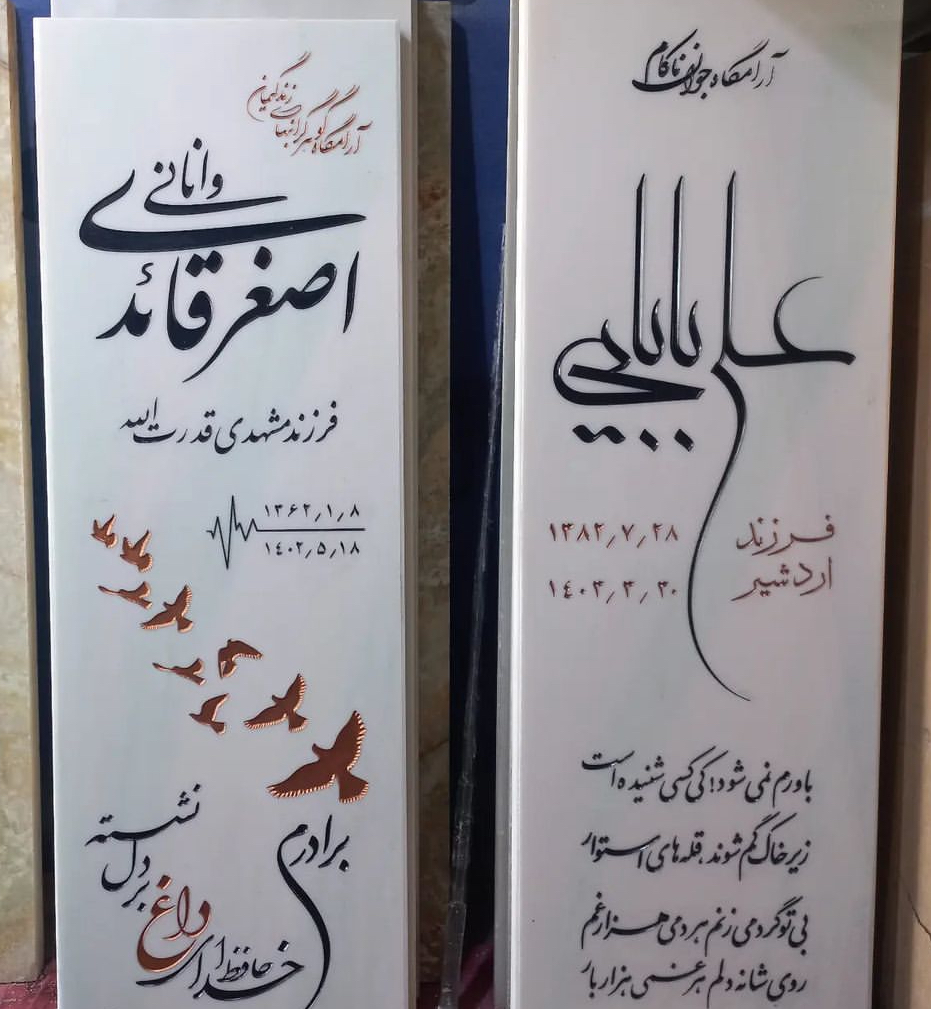 آرامگاه جوان ناکام
علی بابایی
فرزند
اردشیر
۱۳۸۲/۷/۲۸
۱٤۰۳/۳/۳۰
باورم نمی شود! کی کسی شنیده است
زیر خاک گم شوند، قله های استوار
بی تو گر دمی زنم هر دمی هزار غم
روی شانه دلم هر غمی هزار بار
آرامگاه گوهر گرانبهای زندگیمان
اصغر قائدی
وانانی
فرزند مشهدی قدرت الله
۱۳۶۲/۱/۸
۱٤۰۲/۵/۱۸
برادرم
خداحافظ ای
داغ
بر دل
نشسته